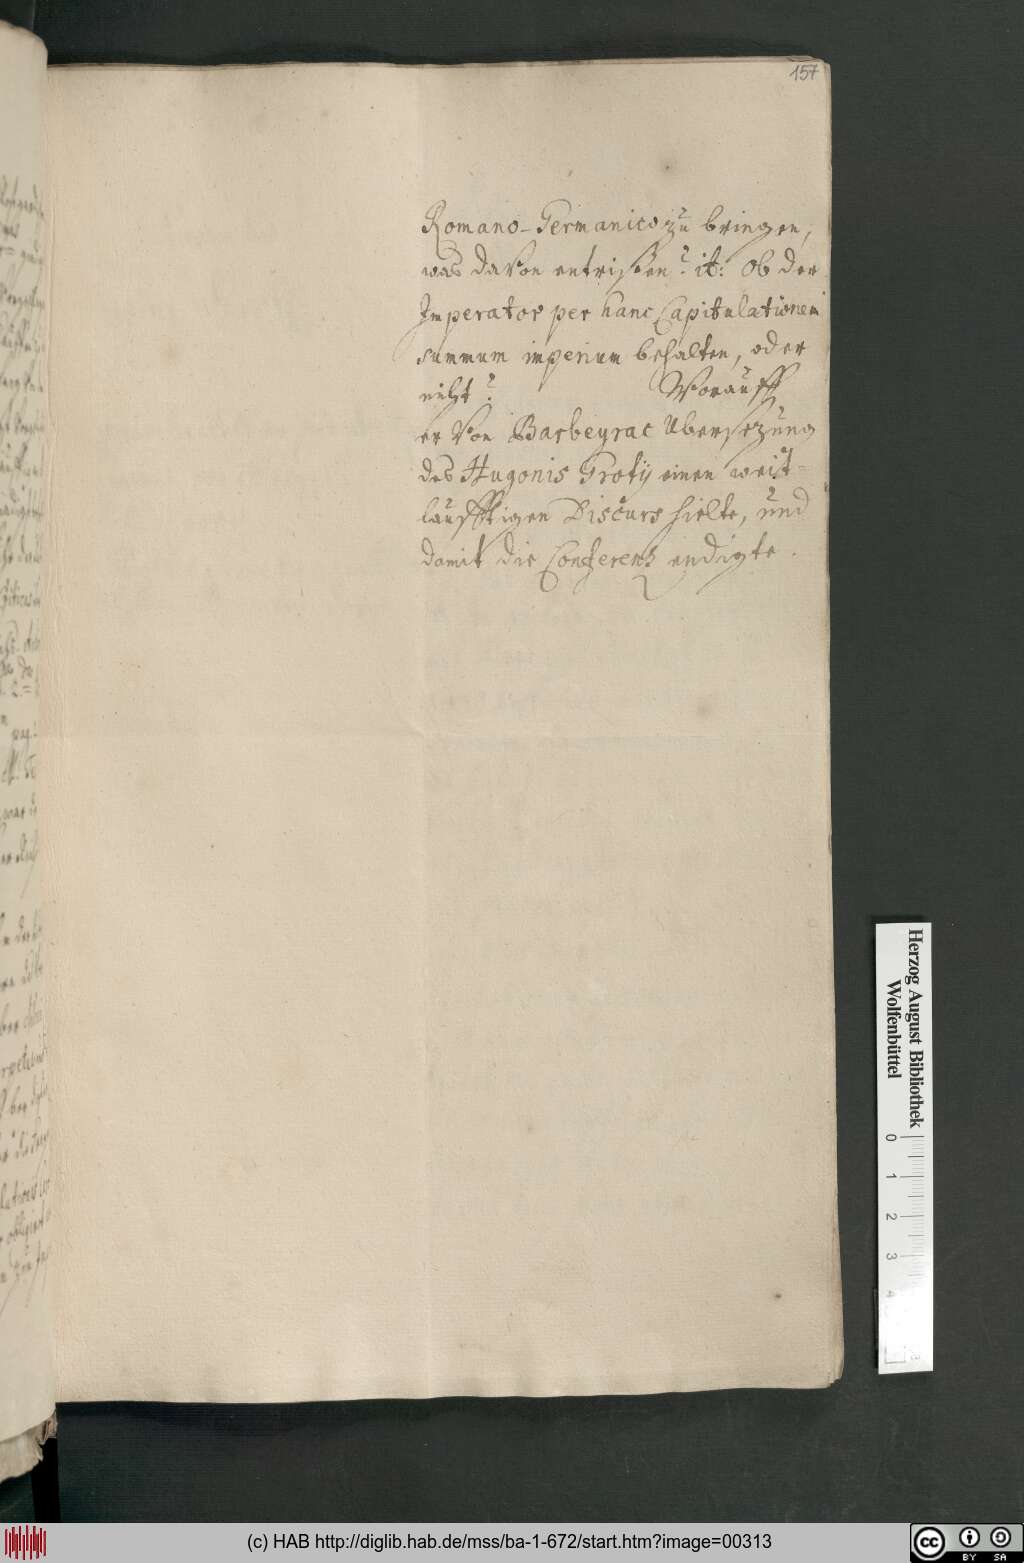 157
Romano-Germanico zu bringen,
was davon entrißen? it: ob der
Imperator per hanc Capitulationem
summum imperium behalten, oder
nicht? Worauff
er von Barbeyrac Ubersezung
des Hugonis Grotij einen weit-
läufftigen Discurs hielte, und
damit die Conferenz endigte.
Herzog August Bibliothek
Wolfenbüttel
0 1 2 3 4
(c) HAB http://diglib.hab.de/mss/ba-1-672/start.htm?image=00313
cc BY SA